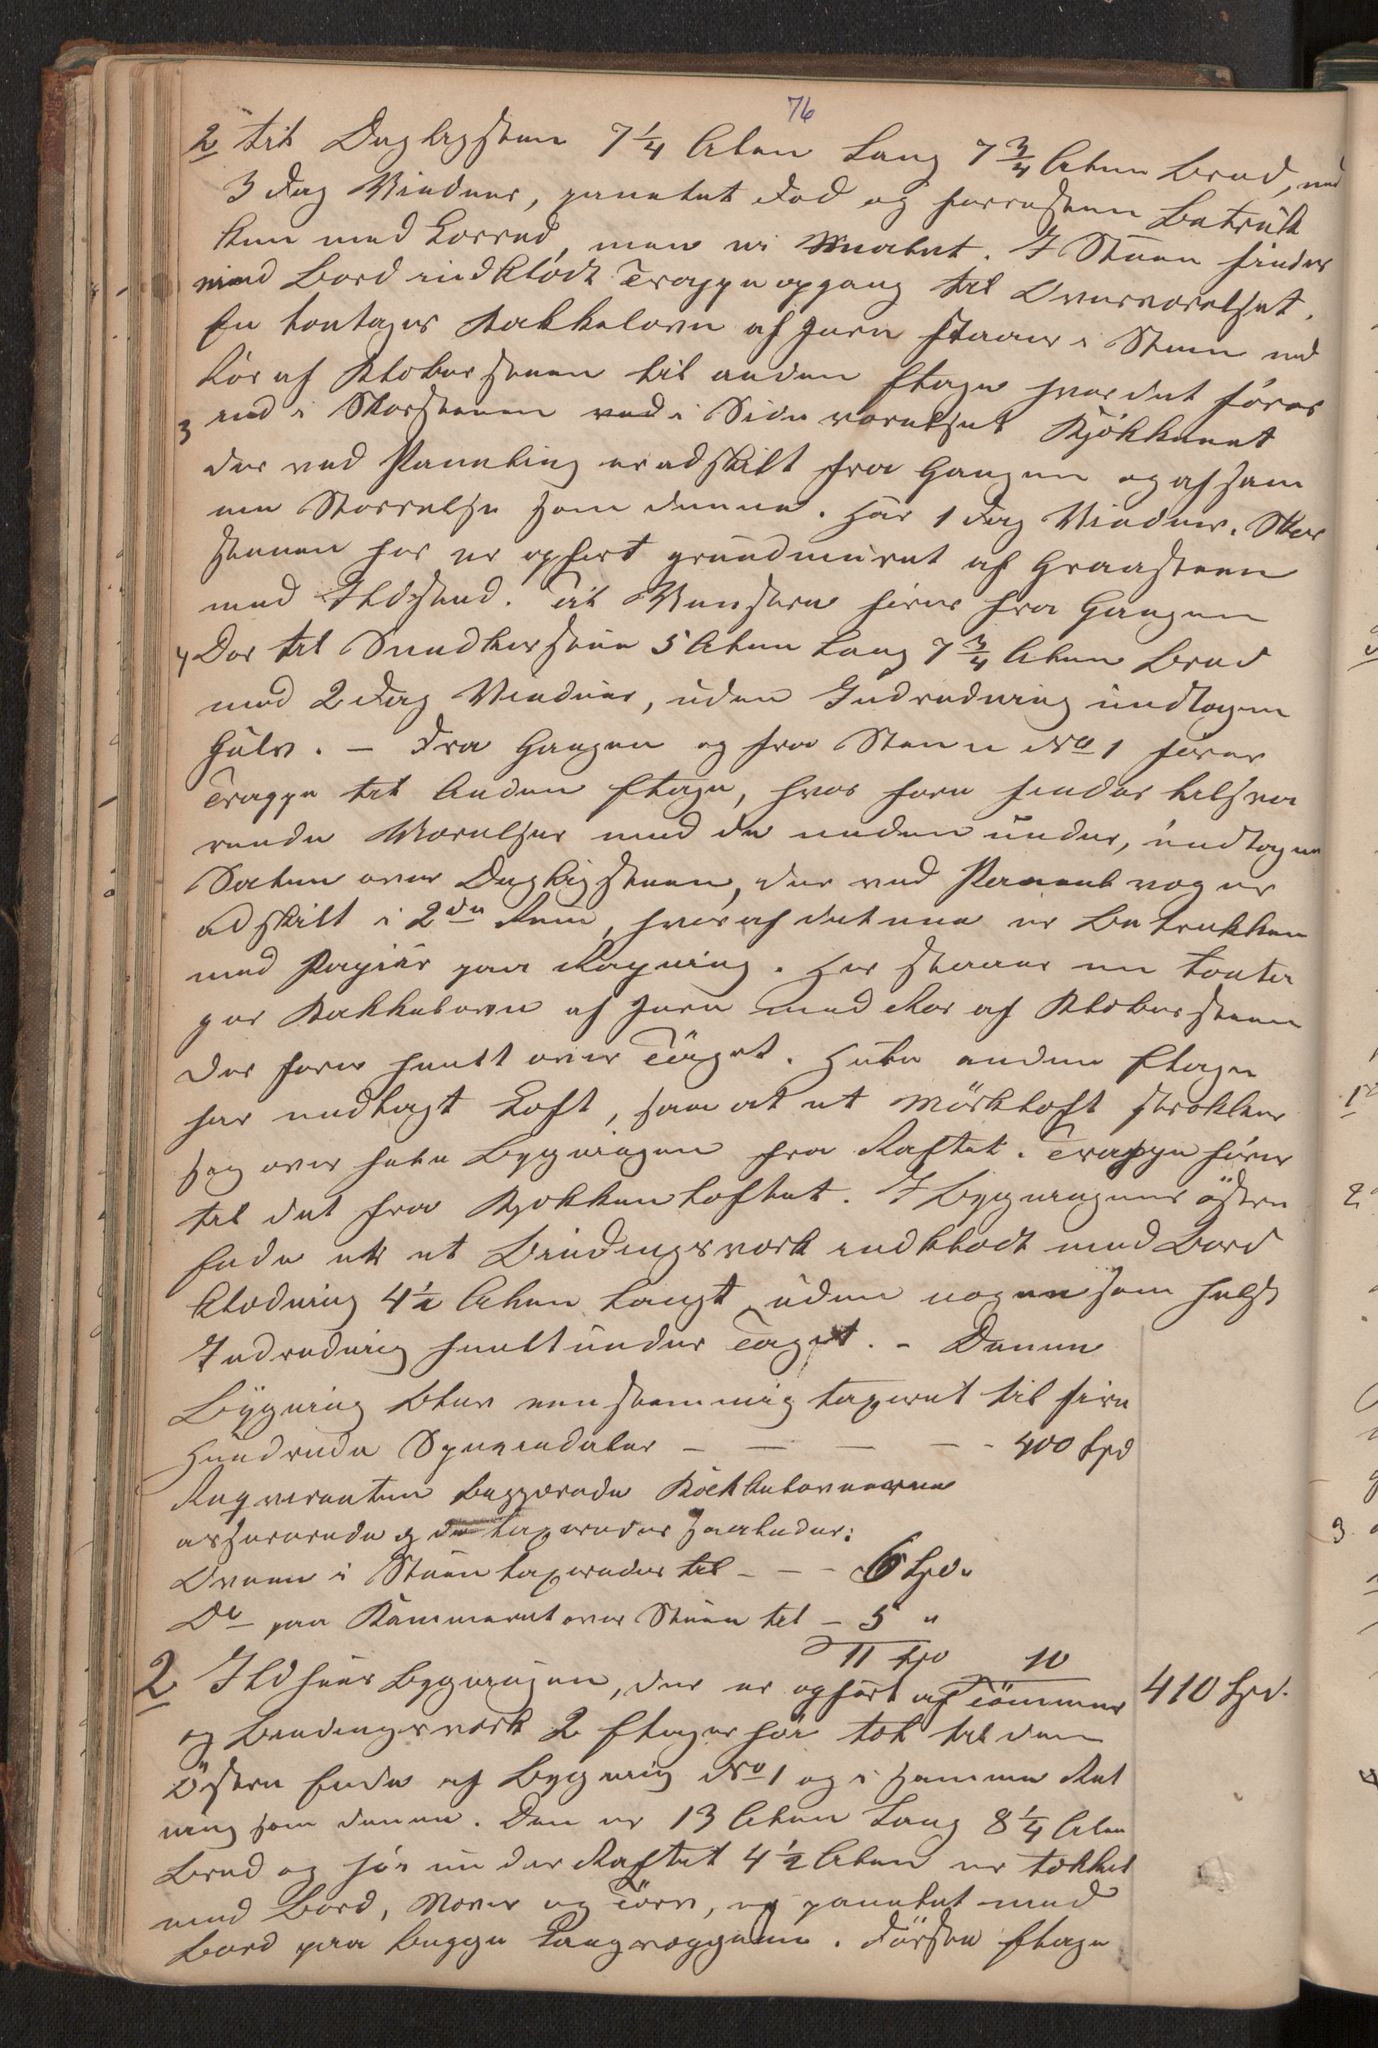 76
2 til Dagligstuen 7 1/4 Alen Lang 7 3/4 Alen Bred, med
3 Fag Vinduer, panelet Fod og forresten Betruk
ken med Lerred, men ei malet. I Stuen findes
med Bord indklædt Trappeopgang til Overværelset.
En toetages Kakkelovn af Jern staaer i Stuen med
Rör af Kleberstenen til anden Etage hvor det föres
ind i Skorstenen ved i Sideværelset
3 Kjökkenet
der ved Paneling er adskilt fra Gangen og af sam
me Størrelse som denne. Har 1 Fag Vinduer. Skor
stenen her er opført grundmuret af Graasteen
med Ildsted. Til Venstre fører fra Gangen
4 Dør til Snedkerstue 5 Alen Lang 7 3/4 Alen Bred
med 2 Fag Vinduer, uden Indredning undtagen
Gulv. – Fra Gangen og fra Stuen No 1 fører
Trappe til Anden Etage, hvor fore findes tilsva
rende Værelser med de neden under, undtagen
Salen over Dagligstuen, der ved Panelvæg er
adskilt i 2de Rum, hvoraf det ene er Betrukken
med Papiir paa Rapning. Her staaer en toeta
ges Kakkelovn af Jern med Rør af Kleberstenen
der fører heelt over Taget. Hele anden Etage
har indlagt Loft, saa at et Mörkloft strækker
sig over hele Bygningen fra Raftet. Trappe fører
til det fra Kjøkkenloftet. I Bygningens östre
Ende er et Bindingsværk indklædt med Bord
klædning 4 1/2 Alen Langt uden nogensom helst
Indredning heelt under Taget. – Denne
Bygning blev eenstemmig taxeret til fire
Hundrede Speciedaler – – – – 400 Spd
Reqvirenten begjærede Kakkelovnene
assurerede og de taxeredes saaledes:
Ovnen i Stuen taxeredes til – – – 6 Spd.
Do paa Kammeret over Stuen til – 5 "
11 Spd 10
410 Spd.
2 Ildhuus Bygningen, der er opfört af Tömmer
og Bindingsværk 2 Etager höi tæt til den
Östre Ende af Bygning No 1 og i samme Ret
ning som denne. Den er 13 Alen Lang 8 1/4 Alen
Bred og höi under Raftet 4 1/2 Alen er tækket
med Bord, Never og Törv, og panelet med
Bord paa begge Langvæggene. Förste Etage